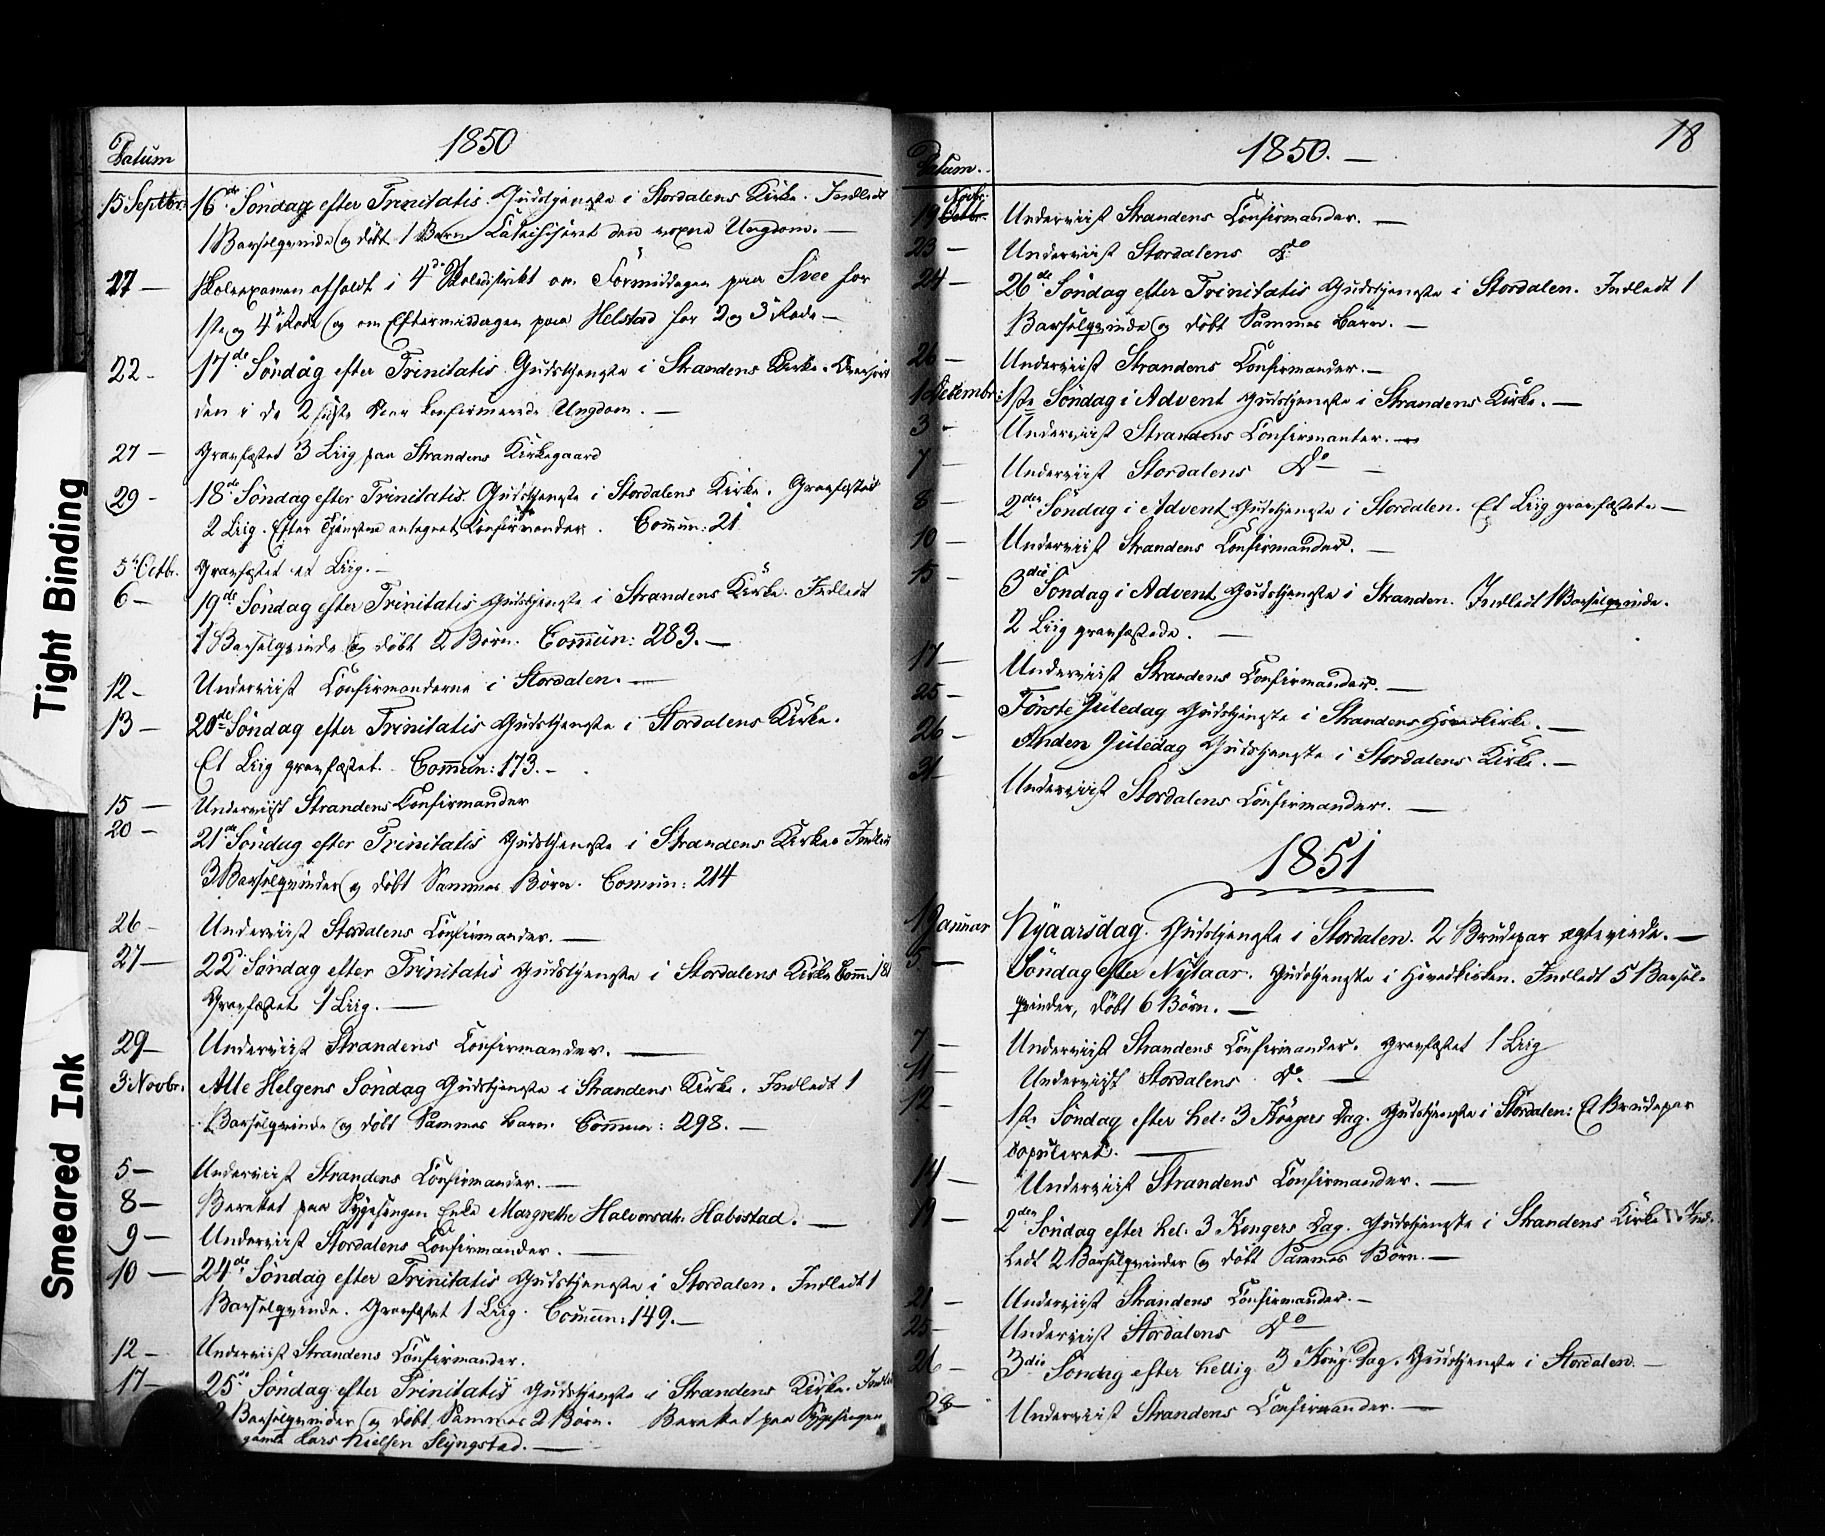 Tight Binding
Smeared Ink
Datum 1850
15 Septbr. 16de Söndag efter Trinitatis. Gudstjeneste i Stordalens Kirke. Indledt
1 Barselqvinde og döbt 1 Barn Catechiseret den voxne Ungdom. —
17 — Skoleexamen afholdt i 4de Skoledistrikt om Formiddagen paa Svee for
1ste og 4de Rode og om Eftermiddagen paa Helstad for 2 og 3die Rode —
22 - 17de Söndag efter Trinitatis. Gudstjeneste i Strandens Kirke.
den i de 2 sidste Aar confirmerede Ungdom. —
27 — Gravfæstet 3 Liig paa Strandens Kirkegaard
29 - 18de Söndag efter Trinitatis. Gudstjeneste i Stordalens Kirke. Gravfæstet
2 Liig. Efter Tjenesten antegnet Confirmander. Commun: 21
5te Octbr. Gravfæstet et Liig. —
6 — 19de Söndag efter Trinitatis Gudstjeneste i Strandens Kirke. Indledt
1 Barselqvinde og döbt 2 Börn. Commun: 283. —
12 - Underviist Confirmanderne i Stordalen. —
13 — 20de Söndag efter Trinitatis Gudstjeneste i Stordalens Kirke.
Et Liig gravfæstet. Commun: 173. —
15 — Underviist Strandens Confirmander
20 — 21de Söndag efter Trinitatis Gudstjeneste i Strandens Kirke.
3 Barselqvinder og döbt Sammes Börn. Comun: 214
26 — Underviist Stordalens Confirmander. —
27 — 22de Söndag efter Trinitatis Gudstjeneste i Stordalens Kirke Comm:
Gravfæstet 1 Liig. —
29 — Underviist Strandens Confirmander. —
3 Novbr. Alle Helgens Söndag Gudstjeneste i Strandens Kirke. Indledt 1
Barselqvinde og döbt Sammes Barn. Commun: 298. —
5 — Underviist Strandens Confirmander. —
8 — Berettet paa Sygesengen Enke Margrethe Halvorsdtr. Habostad. —
9 — Underviist Stordalens Confirmander. —
10 — 24de Söndag efter Trinitatis Gudstjeneste i Stordalen. Indledt 1
Barselqvinde. Gravfæstet 1 Liig. Commun: 149. —
12 — Underviist Strandens Confirmander.
17 — 25de Söndag efter Trinitatis Gudstjeneste i Strandens Kirke.
2 Barselqvinder og döbt Sammes 2 Börn. Berettet paa Sygesengen
gamle Lars Nielsen Slyngstad. —
Datum. 1850. — 18
Novbr.
19 Octbr. Underviist Strandens Confirmander. —
23 — Underviist Stordalens Do
24 — 26de Söndag efter Trinitatis Gudstjeneste i Stordalen. Indledt 1
Barselqvinde og döbt Sammes Barn. —
26 — Underviist Strandens Confirmander. —
1 Decembr: 1ste Söndag i Advent Gudstjeneste i Strandens Kirke. —
3 - Underviist Strandens Confirmanter. —
7 — Underviist Stordalens Do —
8 — 2den Söndag i Advent Gudstjeneste i Stordalen. Et Liig gravfæstet —
10 — Underviist Strandens Confirmander. —
15 - 3die Söndag i Advent Gudstjeneste i Stranden. Indledt 1 Barselqvinde.
2 Liig gravfæstede. —
17 — Underviist Strandens Confirmander. —
25 - Förste Juledag Gudstjeneste i Strandens Hovedkirke. —
26 - Anden Juledag Gudstjeneste i Stordalens Kirke. —
31 Underviist Stordalens Confirmander. —
1851
1 Januar Nyaarsdag. Gudstjeneste i Stordalen. 2 Brudepar ægteviede. —
5 — Söndag efter Nytaar. Gudstjeneste i Hovedkirken. Indledt 5 Barsel-
qvinder, döbt 6 Börn. —
7 — Underviist Strandens Confirmander. Gravfæstet 1 Liig
11 — Underviist Stordalens Do. —
12 - 1ste Söndag efter hel: 3 Kongers Dag. Gudstjeneste i Stordalen: Et Brudepar
copuleret. —
14 — Underviist Strandens Confirmander. —
19 — 2den Söndag efter hel: 3 Kongers Dag. Gudstjeneste i Strandens Kirke. Ind-
ledt 2 Barselqvinder og döbt Sammes Börn. —
21 — Underviist Strandens Confirmander. —
25 — Underviist Stordalens Do —
26 — 3die Söndag efter hellig 3 Kong. Dag. Gudstjeneste i Stordalen. —
28 — Underviist Strandens Confirmander. —